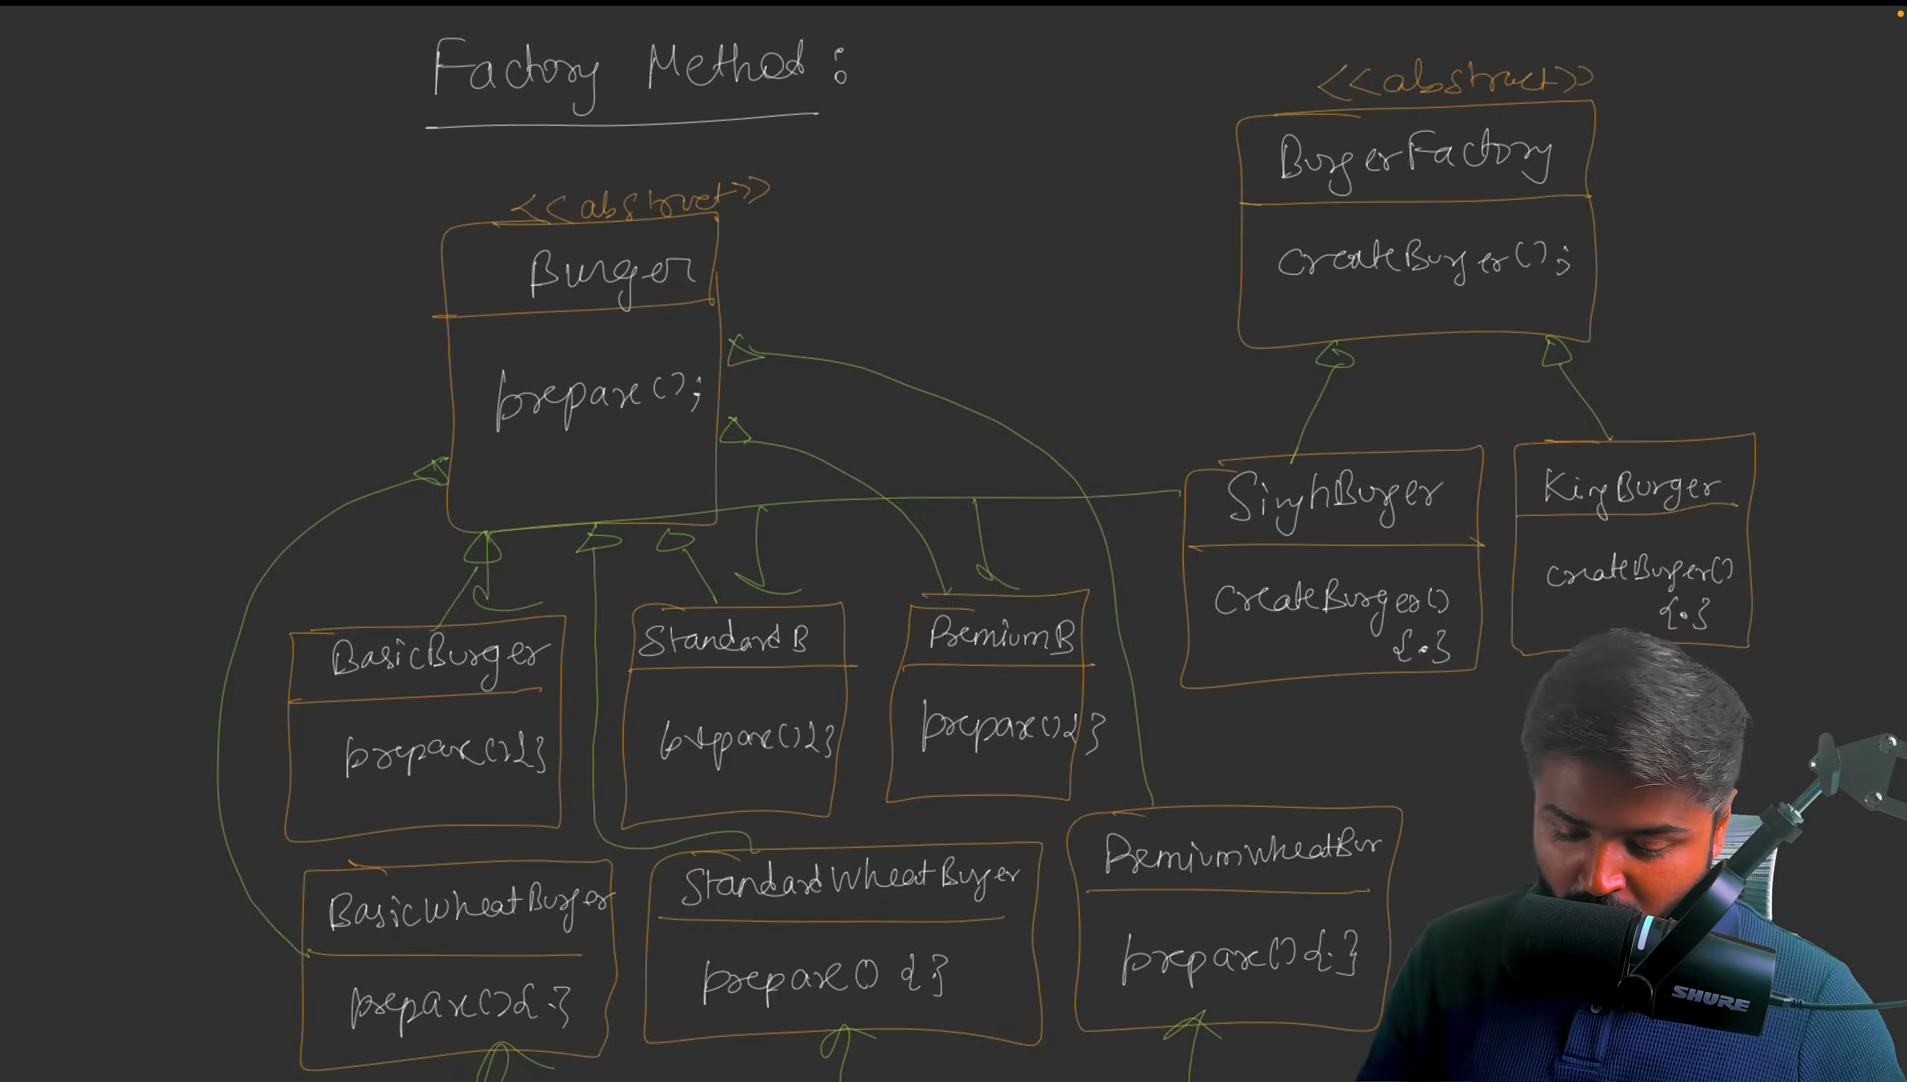 Factory Method:
<<abstract>>
Burger
prepare();
<<abstract>>
BurgerFactory
createBurger();
SinghBurger
createBurger()
{.}
KingBurger
createBurger()
{.}
BasicBurger
prepare(){}
StandardB
prepare(){}
PremiumB
prepare(){}
BasicWheatBurger
prepare(){.}
StandardWheatBurger
prepare() {.}
PremiumWheatBur
prepare(){.}
SHURE